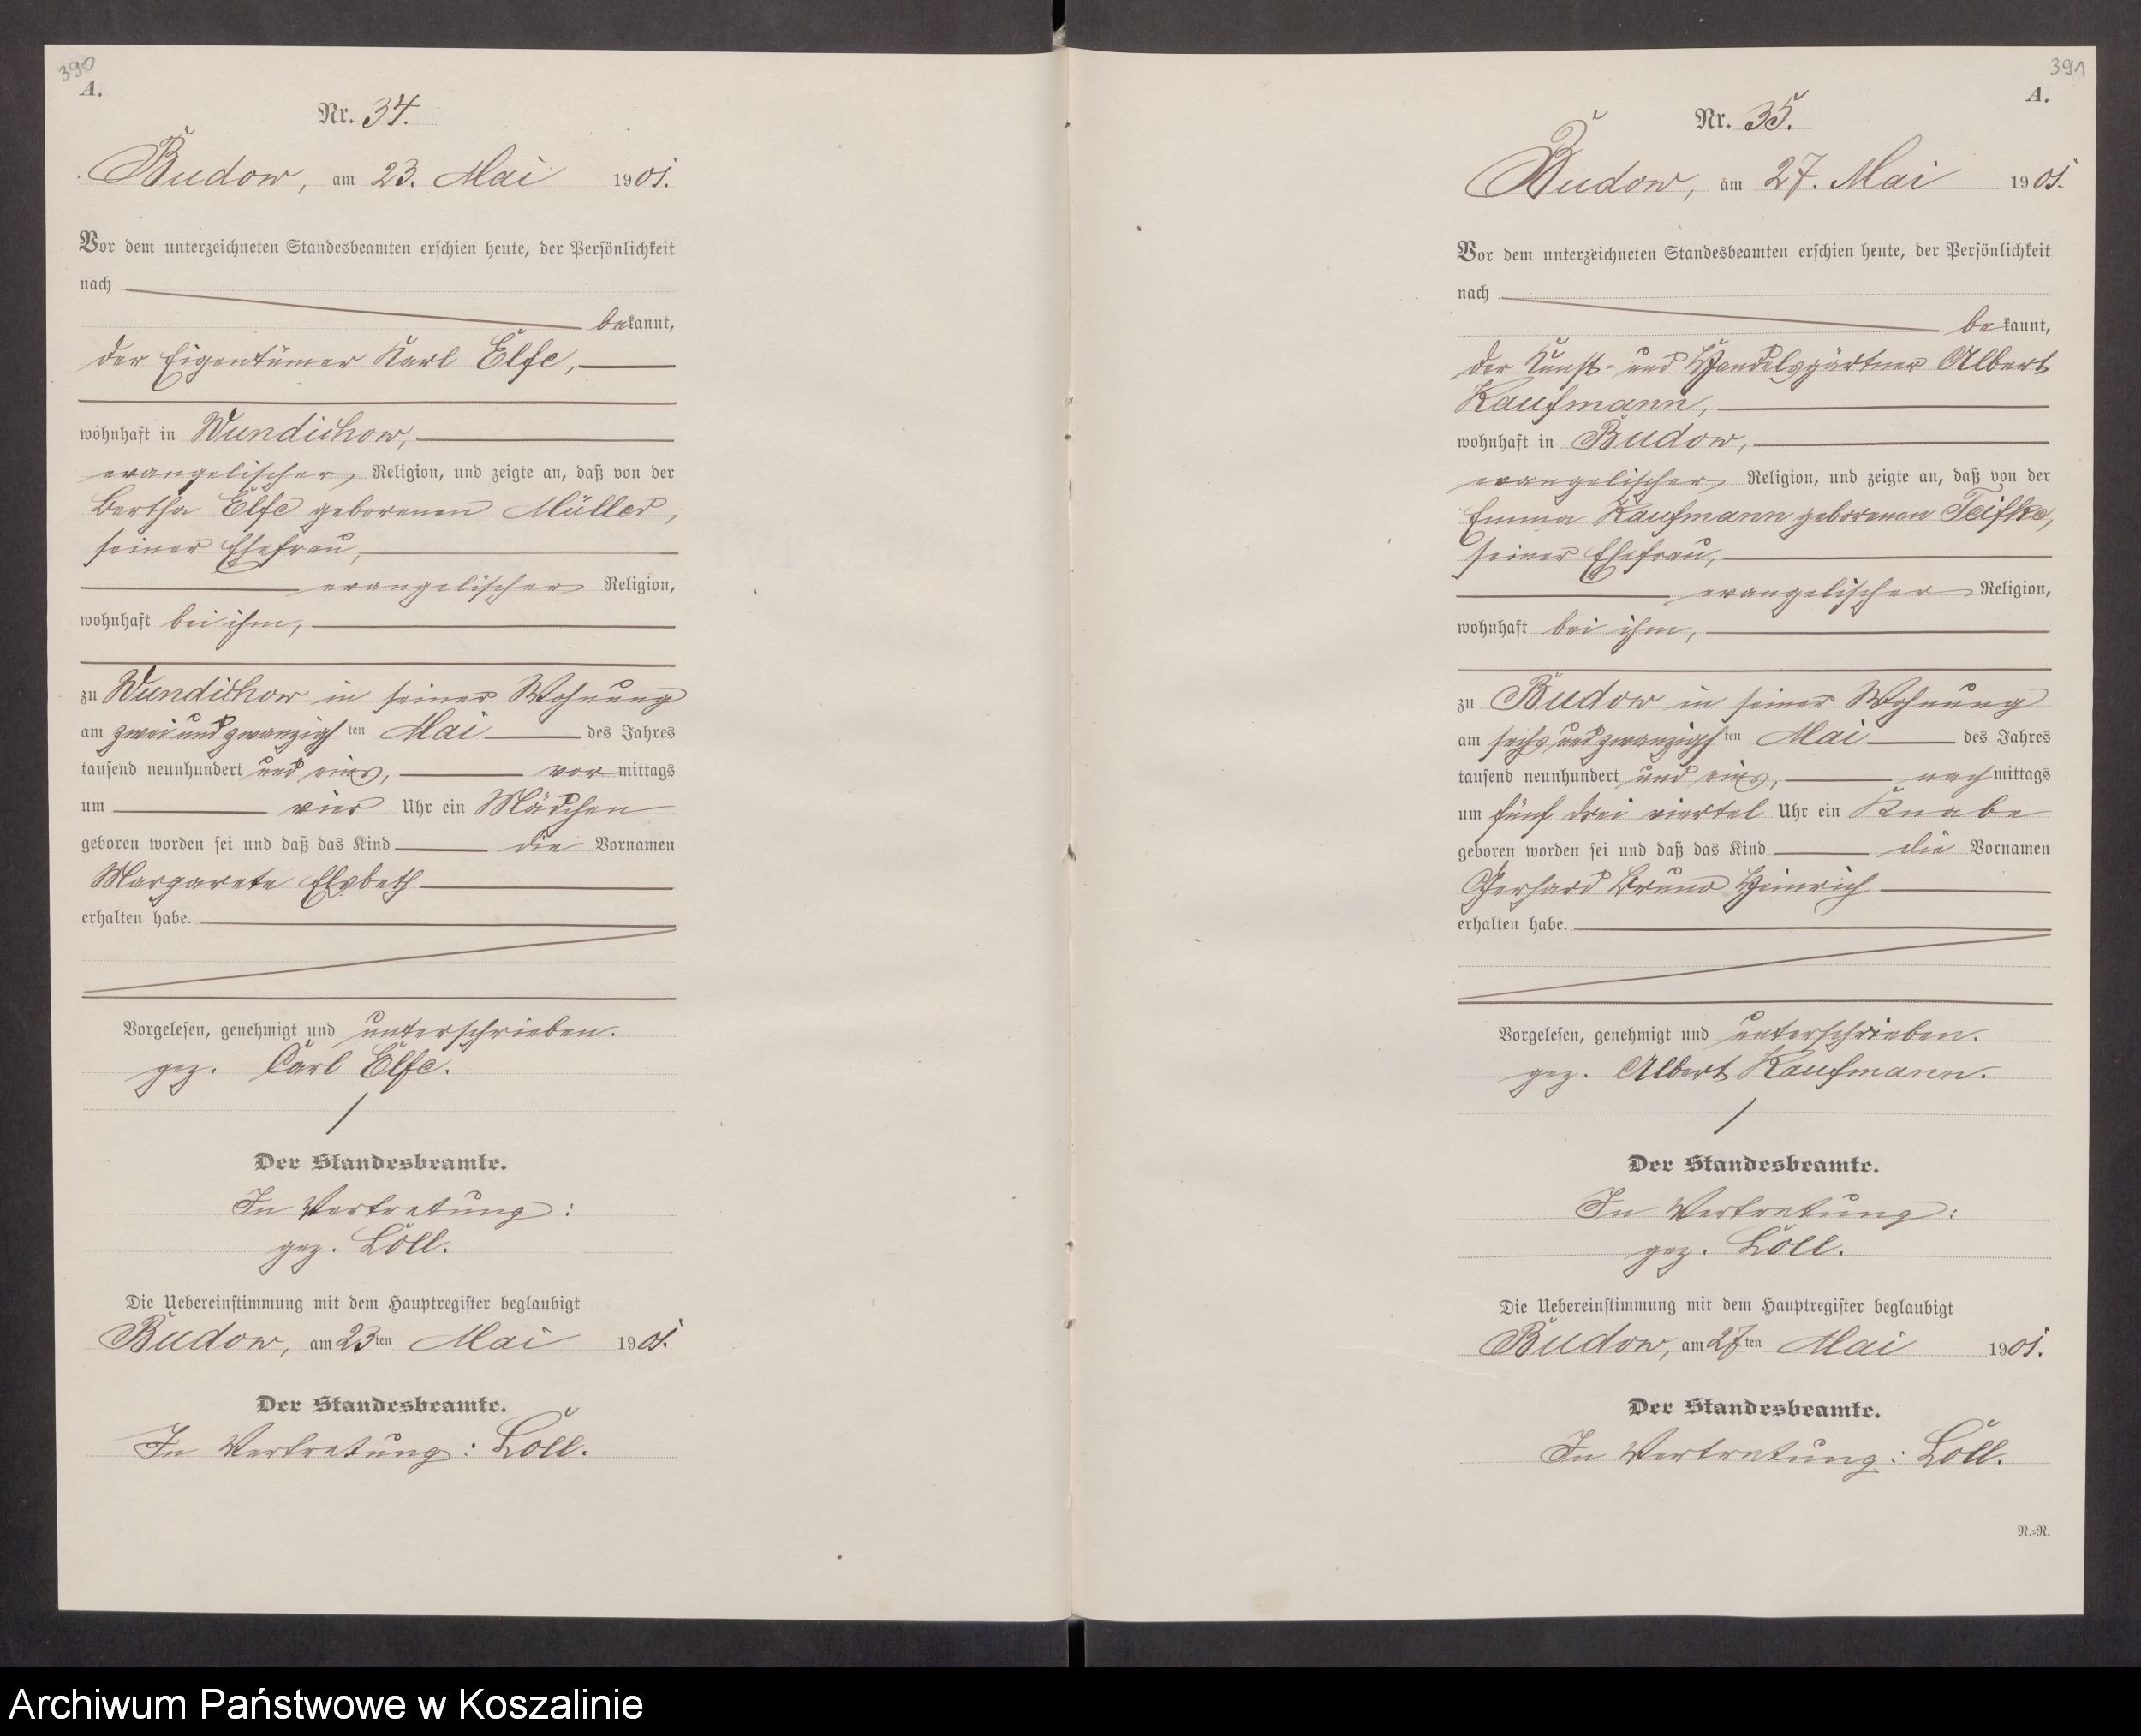 390
A.
Nr. 34.
Budow, am 23. Mai 1901.
Vor dem unterzeichneten Standesbeamten erschien heute, der Persönlichkeit
nach
bekannt,
der Eigentümer Karl Elfe,
wohnhaft in Wundichow,
evangelischer Religion, und zeigte an, daß von der
Bertha Elfe geborenen Müller,
seiner Ehefrau,
evangelischer Religion,
wohnhaft bei ihm,
zu Wundichow in seiner Wohnung
am zwei und zwanzigsten Mai des Jahres
tausend neunhundert und eins, vormittags
um vier Uhr ein Mädchen
geboren worden sei und daß das Kind die Vornamen
Margarete Elsbeth
erhalten habe.
Vorgelesen, genehmigt und unterschrieben.
gez. Carl Elfe.
Der Standesbeamte.
In Vertretung:
gez. Loll.
Die Uebereinstimmung mit dem Hauptregister beglaubigt
Budow, am 23ten Mai 1901.
Der Standesbeamte.
In Vertretung: Loll.
391
A.
Nr. 35.
Budow, am 27. Mai 1901.
Vor dem unterzeichneten Standesbeamten erschien heute, der Persönlichkeit
nach
bekannt,
der Kunst- und Handelsgärtner Albert
Kaufmann,
wohnhaft in Budow,
evangelischer Religion, und zeigte an, daß von der
Emma Kaufmann geborenen Teifke,
seiner Ehefrau,
evangelischer Religion,
wohnhaft bei ihm,
zu Budow in seiner Wohnung
am sechs und zwanzigsten Mai des Jahres
tausend neunhundert und eins, nachmittags
um fünf drei viertel Uhr ein Knabe
geboren worden sei und daß das Kind die Vornamen
Gerhard Bruno Heinrich
erhalten habe.
Vorgelesen, genehmigt und unterschrieben.
gez. Albert Kaufmann.
Der Standesbeamte.
In Vertretung:
gez. Loll.
Die Uebereinstimmung mit dem Hauptregister beglaubigt
Budow, am 27ten Mai 1901.
Der Standesbeamte.
In Vertretung: Loll.
N.=R.
Archiwum Państwowe w Koszalinie